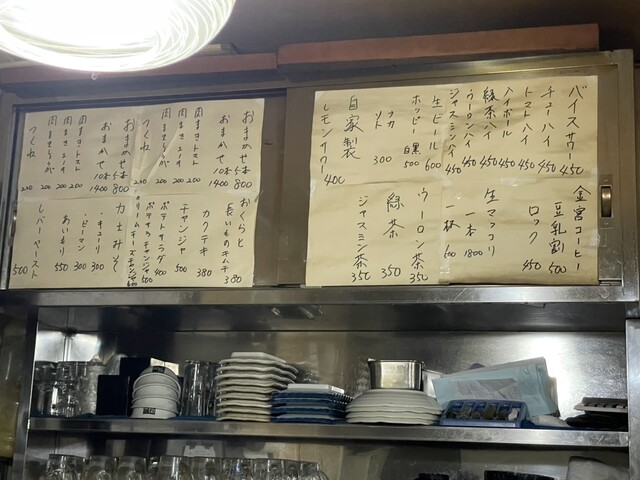 バイスサワー 450
チューハイ 450
トマトハイ 450
ハイボール 450
緑茶ハイ 450
ウーロンハイ 450
ジャスミンハイ 450
生ビール 600
ホッピー 白黒 500
ナカ 300
ソト
自家製
レモンサワー 400
金宮コーヒー
豆乳割 500
ロック 450
生マッコリ
一本 1800
一杯 600
ウーロン茶 350
緑茶 350
ジャスミン茶 350
おまかせ 5本 800
おまかせ 10本 1400
肉まきトマト 200
肉まき 200
肉まき 200
つくね 200
おまかせ 5本 800
おまかせ 10本 1400
肉まきトマト 200
肉まき 200
肉まき 200
つくね 200
おくらと
長いものキムチ 380
カクテキ 380
チャンジャ 500
ポテトサラダ 400
ポテサラチャンジャ 500
クリームチーズチャンジャ 600
カ士みそ
・キューリ 300
・ピーマン 300
あいもり 550
レバーペースト 500